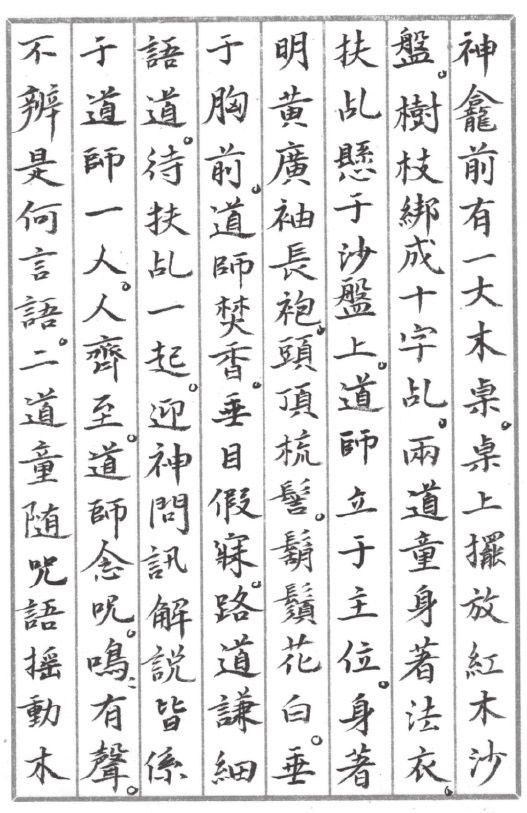 神龕前有一大木桌。桌上擺放紅木沙
盤。樹枝綁成十字乩。兩道童身著法衣。
扶乩懸于沙盤上。道師立于主位。身著
明黃廣袖長袍。頭頂梳髻。鬍鬚花白。垂
于胸前。道師焚香。垂目假寐。路道謙細
語道。待扶乩一起。迎神問訊解說皆係
于道師一人。人齊至。道師念咒。嗚〻有聲。
不辨是何言語。二道童随咒語搖動木